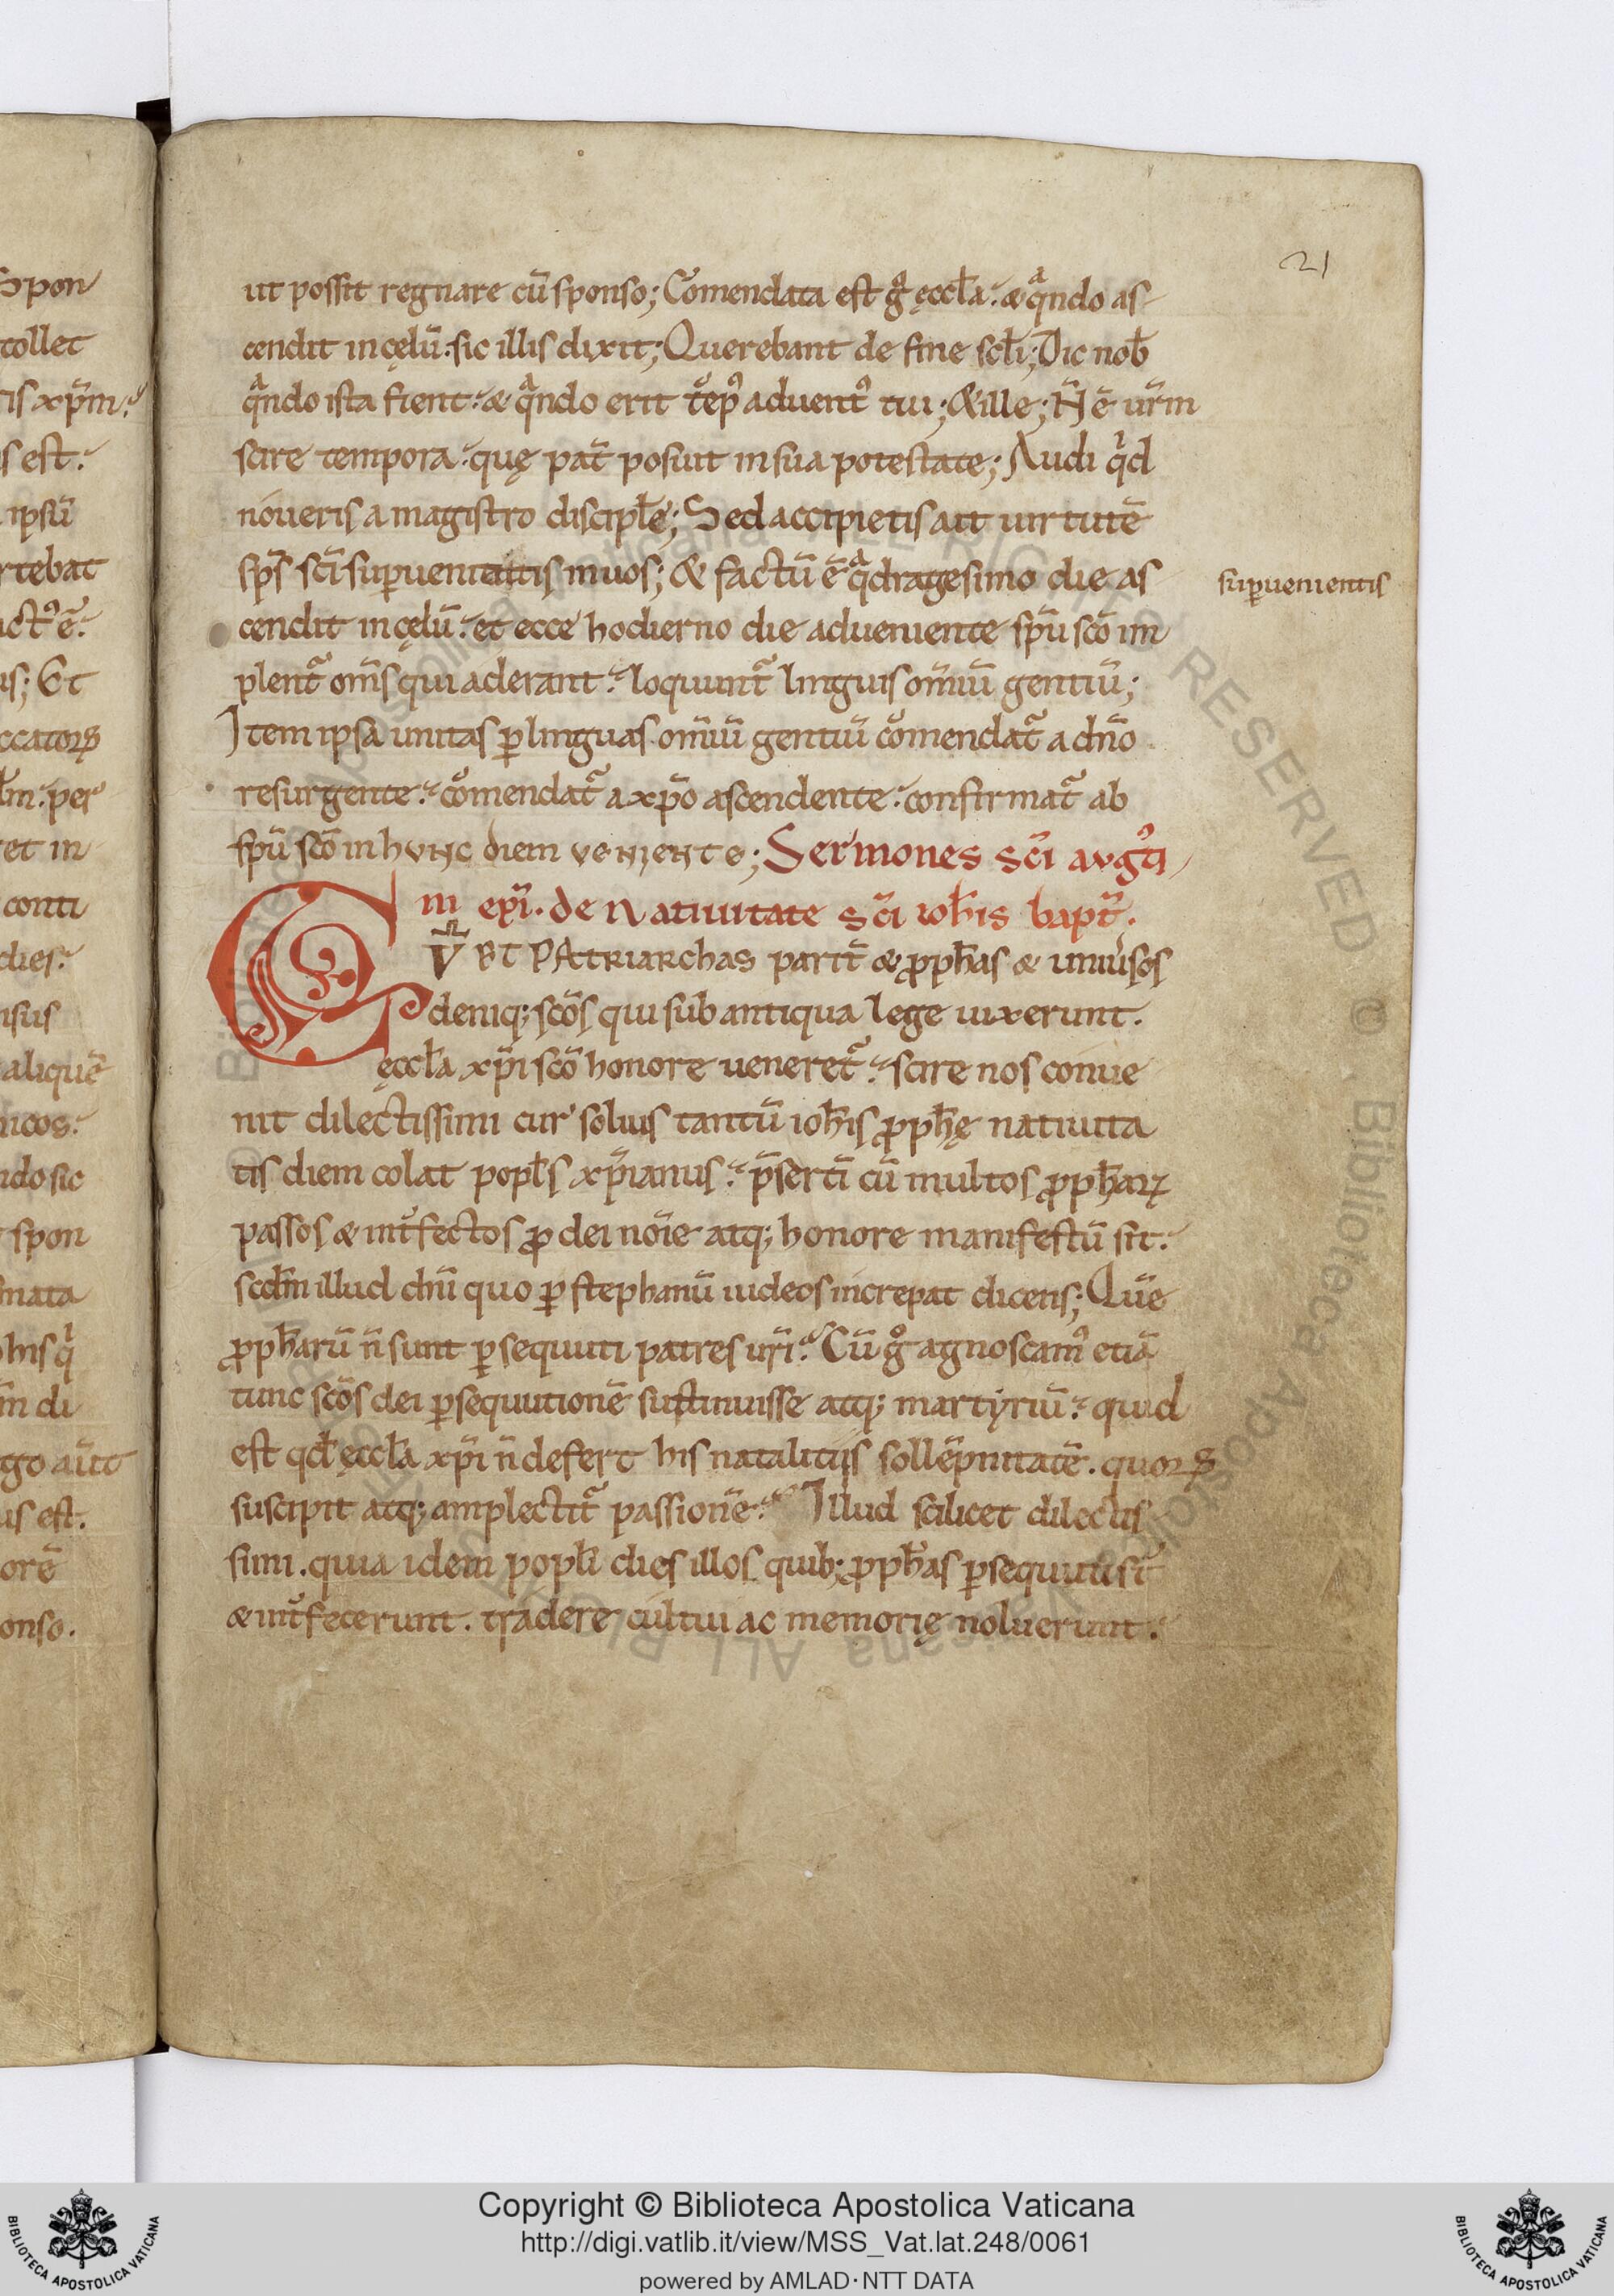 21
ut possit regnare cū sponso; Cōmendata est gͦ ęccl̄a. & qͣndo as
cendit in cęlū. sic illis dixit; Querebant de fine scl̄i; Dic nob̄
qͣndo ista fient. & qͣndo erit tēpꝰ aduentꝰ tui; & ille; N̄ ē ur̄m
scire tempora. quę pat̄ posuit in sua potestate; Audi qͥd
noueris a magistro discipl̄e; Sed accipietis ait uirtutē
sp̄s sc̄i suꝑuenitatis in uos; & factū ē qͣdragesimo die as
suꝑuenientis
cendit in cęlū. et ecce hodierno die adueniente sp̄u sc̄o im
plent᷑ om̄s qui aderant. loquunt᷑ linguis om̄iū gentiū;
Item ipsa unitas ꝑ linguas om̄iū gentiū cōmendat᷑ a dn̄o
resurgente. cōmendat᷑ a xp̄o ascendente. confirmat᷑ ab
sp̄u sc̄o in hunc diem ueniente; Sermones sc̄i augꝰti
ni ep̄i. de Natiuitate sc̄i ioh̄is bapt̄.
CVR CVM PAtriarchas parit̄ & ꝓph̄as & uniūsos
deniq; sc̄os qui sub antiqua lege uixerunt.
ęccl̄a xp̄i sc̄o honore ueneret᷑. scire nos conue
nit dilectissimi cur solius tantū ioh̄is ꝓph̄ę natiuita
tis diem colat popl̄s xp̄ianus. p̄sertī cū multos ꝓph̄aꝝ
passos & int̄fectos ꝓ dei noīe atq; honore manifestū sit.
scd̄m illud dn̄i quo ꝑ stephanū iudeos increpat dicens; Quē
ꝓph̄arū n̄ sunt ꝑsequuti patres ur̄i. Cū gͦ agnoscamꝰ etiā
tunc sc̄os dei ꝑsequutionē sustinuisse atq; martyriū. quid
est qd̄ ęccl̄a xp̄i n̄ defert his natalitiis sollēpnitatē. quoꝝ
suscipit atq; amplectit᷑ passionē. Illud scilicet dilectis
simi. quia idem popl̄i dies illos quib; ꝓph̄as ꝑsequuti st̄
& int̄fecerunt. tradere cultui ac memorię noluerunt.
Copyright © Biblioteca Apostolica Vaticana
http://digi.vatlib.it/view/MSS_Vat.lat.248/0061
powered by AMLAD·NTT DATA